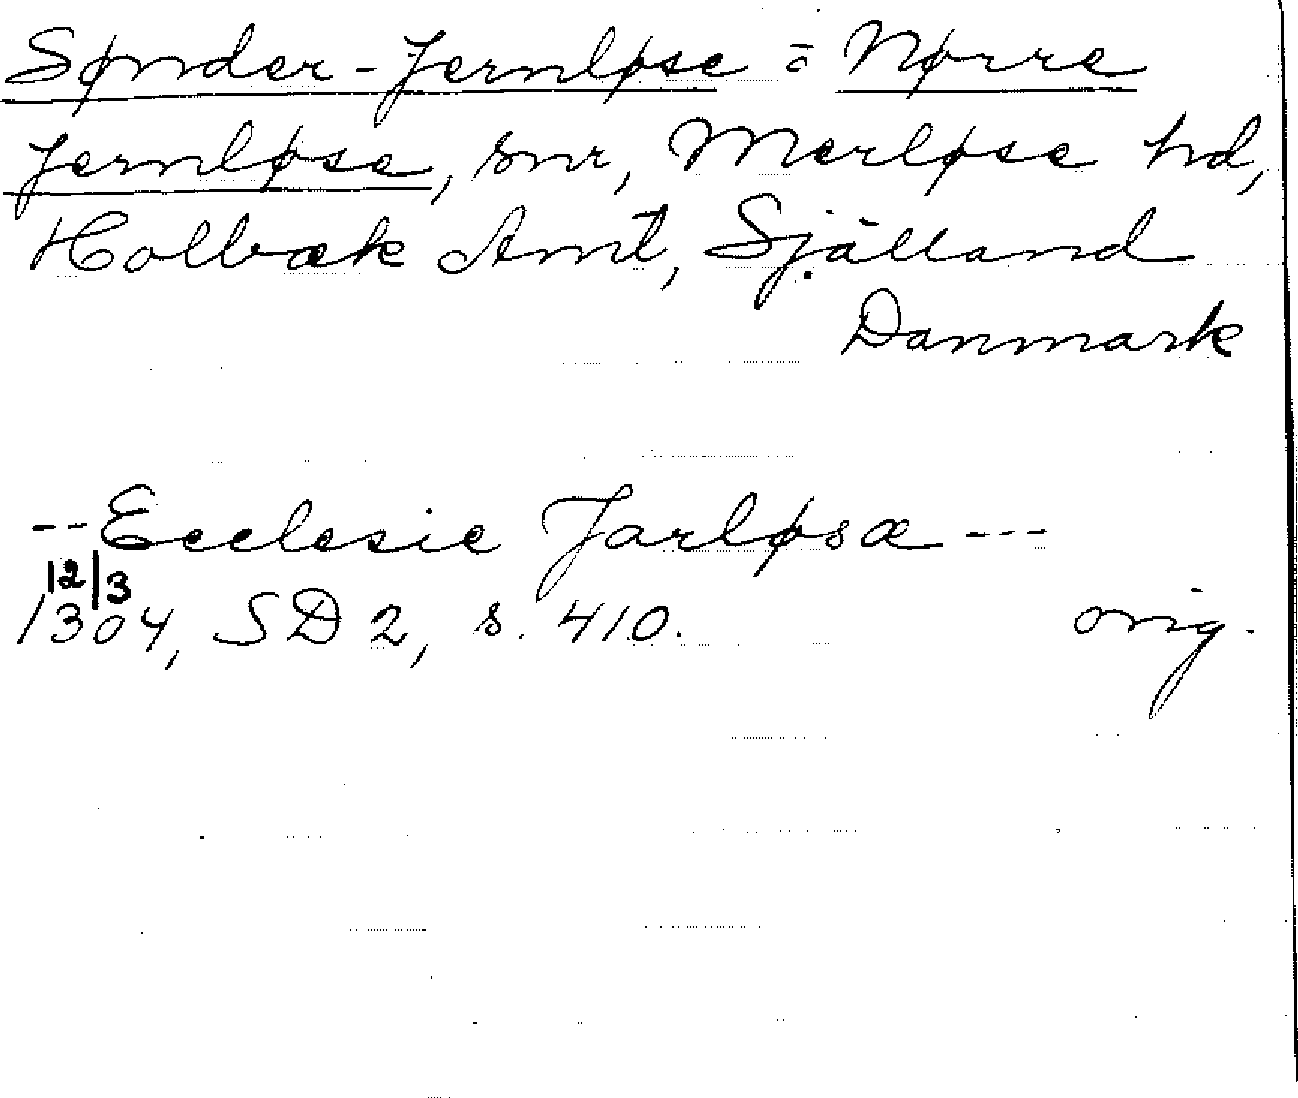 Sønder-Jernløse o Nørre
Jernløse, snr, Merløse hd,
Holbæk Amt, Sjælland
Danmark
--Ecclesie Jarløsæ---
12/3
1304, SD 2, s. 410. orig.